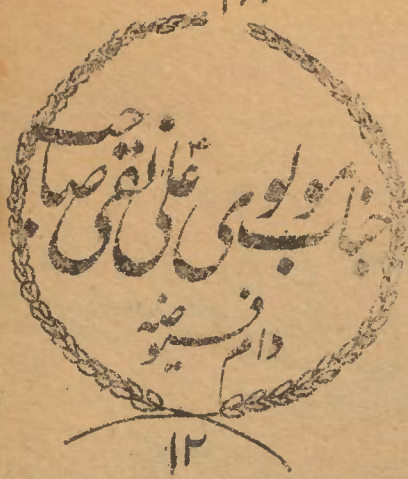 جناب مولوی علی نقی صاحب
دام فیوضہ
۱۲